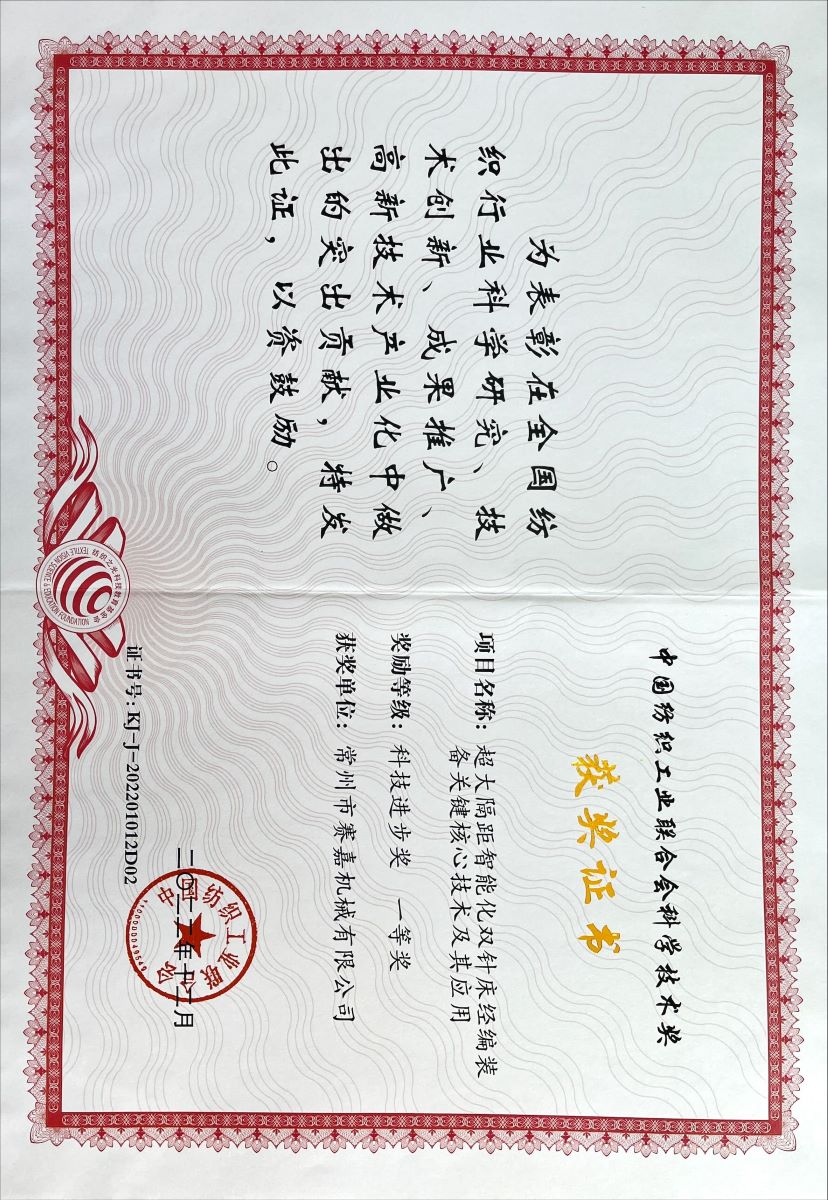 为表彰在全国纺
织行业科学研究、技
术创新、成果推广、
高新技术产业化中做
出的突出贡献，特发
此证，以资鼓励。
中国纺织工业联合会科学技术奖
获奖证书
项目名称：超大隔距智能化双针床经编装
备关键核心技术及其应用
奖励等级：科技进步奖 一等奖
获奖单位：常州市赛嘉机械有限公司
证书号：KJ-J-202201012D02
二〇二二年十二月
中国纺织工业联合会
1100000049549
纺织之光科技教育基金会
TEXTILE VISION SCIENCE & EDUCATION FOUNDATION